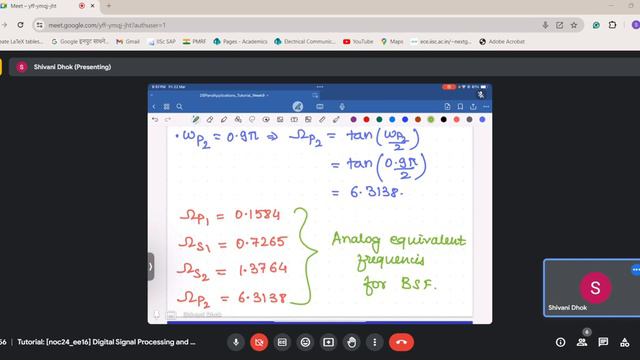 Meet – yff-ymqj-jht
meet.google.com/yff-ymqj-jht?authuser=1
Create LaTeX tables...
Google इनपुट साधने...
Gmail
IISc SAP
PMRF
Pages - Academics
Electrical Communic...
YouTube
Maps
ece.iisc.ac.in/~nextg...
Adobe Acrobat
S Shivani Dhok (Presenting)
ωp₂ = 0.9π ⇒ Ωp₂ = tan(ωp₂/2)
= tan(0.9π/2)
= 6.3138.
Ωp₁ = 0.1584
Ωs₁ = 0.7265
Ωs₂ = 1.3764
Ωp₂ = 6.3138
Analog equivalent
frequencies
for BSF.
Shivani Dhok
S
Shivani Dhok
56 | Tutorial: [noc24_ee16] Digital Signal Processing and ...
6